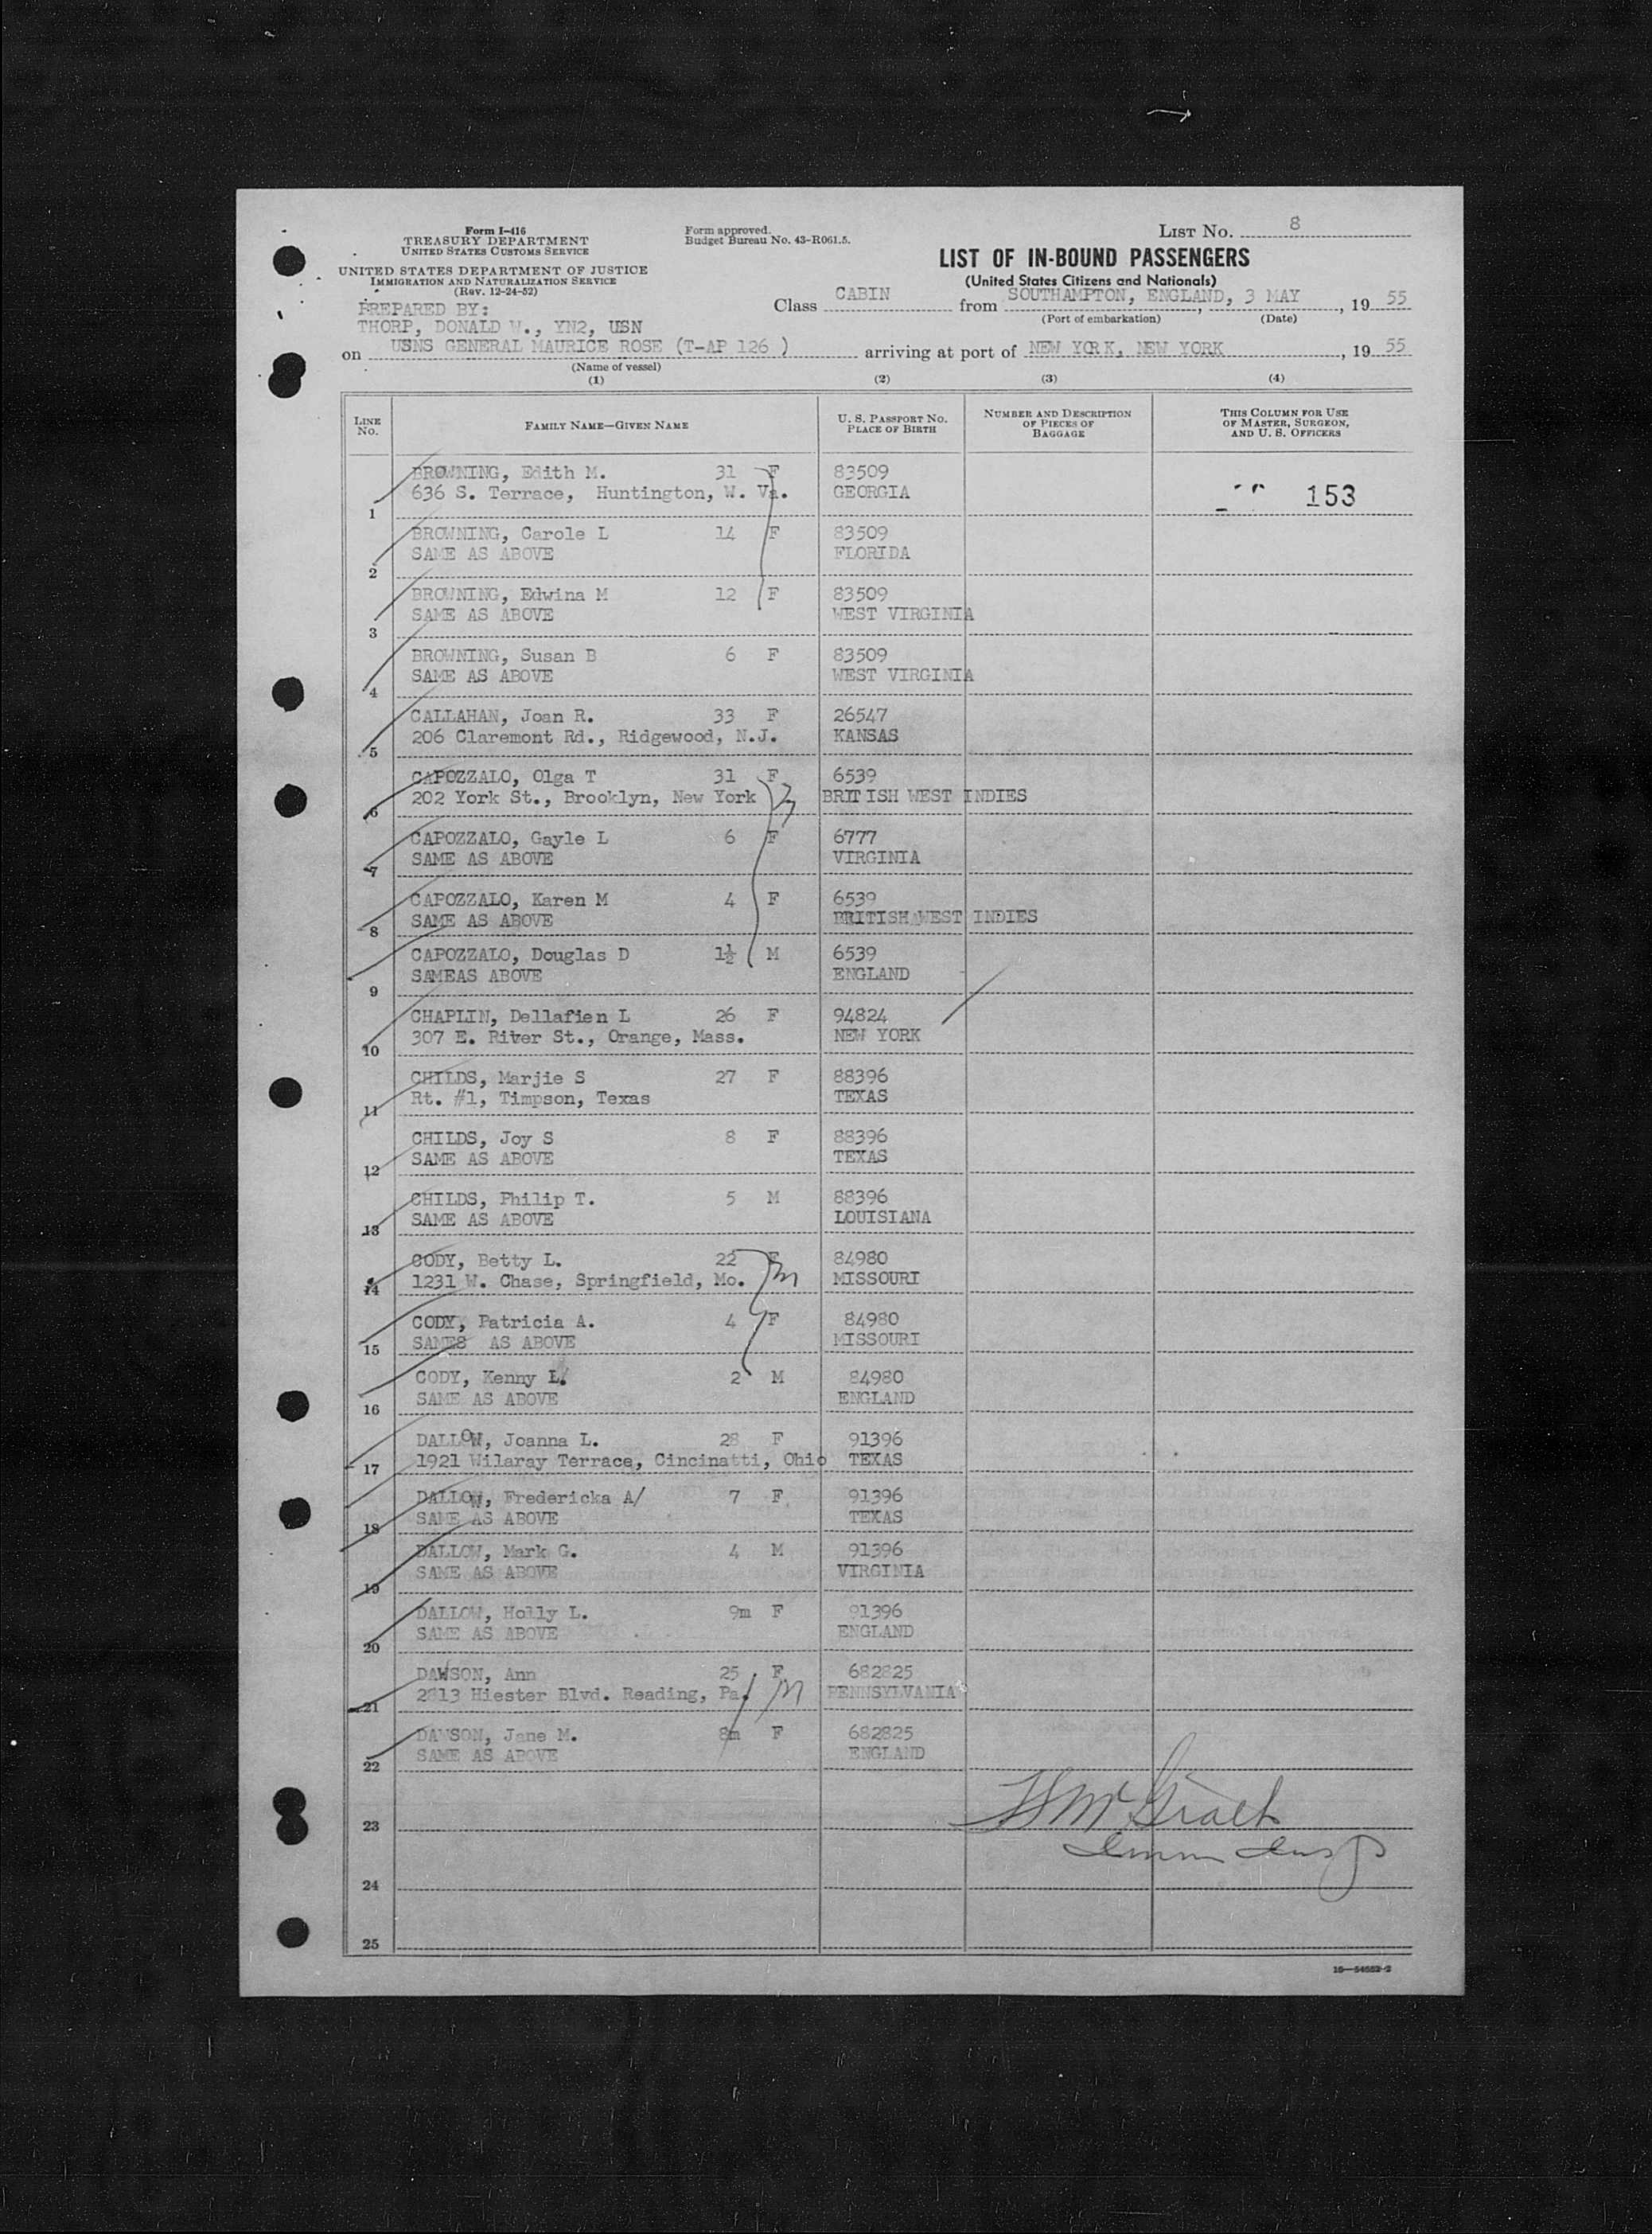 Form I-416
TREASURY DEPARTMENT
UNITED STATES CUSTOMS SERVICE
UNITED STATES DEPARTMENT OF JUSTICE
IMMIGRATION AND NATURALIZATION SERVICE
(Rev. 12-24-52)
Form approved.
Budget Bureau No. 43-R061.5.
LIST No. 8
LIST OF IN-BOUND PASSENGERS
(United States Citizens and Nationals)
PREPARED BY:
THORP, DONALD W., YN2, USN
Class CABIN from SOUTHAMPTON, ENGLAND, 3 MAY, 19 55
(Port of embarkation) (Date)
on USNS GENERAL MAURICE ROSE (T-AP 126 ) arriving at port of NEW YORK, NEW YORK, 19 55
(Name of vessel)
(1) (2) (3) (4)
LINE No. FAMILY NAME—GIVEN NAME U. S. PASSPORT NO. PLACE OF BIRTH NUMBER AND DESCRIPTION OF PIECES OF BAGGAGE THIS COLUMN FOR USE OF MASTER, SURGEON, AND U. S. OFFICERS
BROWNING, Edith M. 31 F 83509
1 636 S. Terrace, Huntington, W. Va. GEORGIA 153
BROWNING, Carole L 14 F 83509
2 SAME AS ABOVE FLORIDA
BROWNING, Edwina M 12 F 83509
3 SAME AS ABOVE WEST VIRGINIA
BROWNING, Susan B 6 F 83509
4 SAME AS ABOVE WEST VIRGINIA
CALLAHAN, Joan R. 33 F 26547
5 206 Claremont Rd., Ridgewood, N.J. KANSAS
CAPOZZALO, Olga T 31 F 6539
6 202 York St., Brooklyn, New York BRITISH WEST INDIES
CAPOZZALO, Gayle L 6 F 6777
7 SAME AS ABOVE VIRGINIA
CAPOZZALO, Karen M 4 F 6539
8 SAME AS ABOVE BRITISH WEST INDIES
CAPOZZALO, Douglas D 1½ M 6539
9 SAMEAS ABOVE ENGLAND
CHAPLIN, Dellafien L 26 F 94824
10 307 E. River St., Orange, Mass. NEW YORK
CHILDS, Marjie S 27 F 88396
11 Rt. #1, Timpson, Texas TEXAS
CHILDS, Joy S 8 F 88396
12 SAME AS ABOVE TEXAS
CHILDS, Philip T. 5 M 88396
13 SAME AS ABOVE LOUISIANA
CODY, Betty L. 22 F 84980
14 1231 W. Chase, Springfield, Mo. MISSOURI
CODY, Patricia A. 4 F 84980
15 SAMES AS ABOVE MISSOURI
CODY, Kenny L. 2 M 84980
16 SAME AS ABOVE ENGLAND
DALLOW, Joanna L. 28 F 91396
17 1921 Wilaray Terrace, Cincinatti, Ohio TEXAS
DALLOW, Fredericka A/ 7 F 91396
18 SAME AS ABOVE TEXAS
DALLOW, Mark G. 4 M 91396
19 SAME AS ABOVE VIRGINIA
DALLOW, Holly L. 9m F 91396
20 SAME AS ABOVE ENGLAND
DAWSON, Ann 25 F 682825
21 2813 Hiester Blvd. Reading, Pa. PENNSYLVANIA
DAWSON, Jane M. 8m F 682825
22 SAME AS ABOVE ENGLAND
23
24
25
16—54552-2